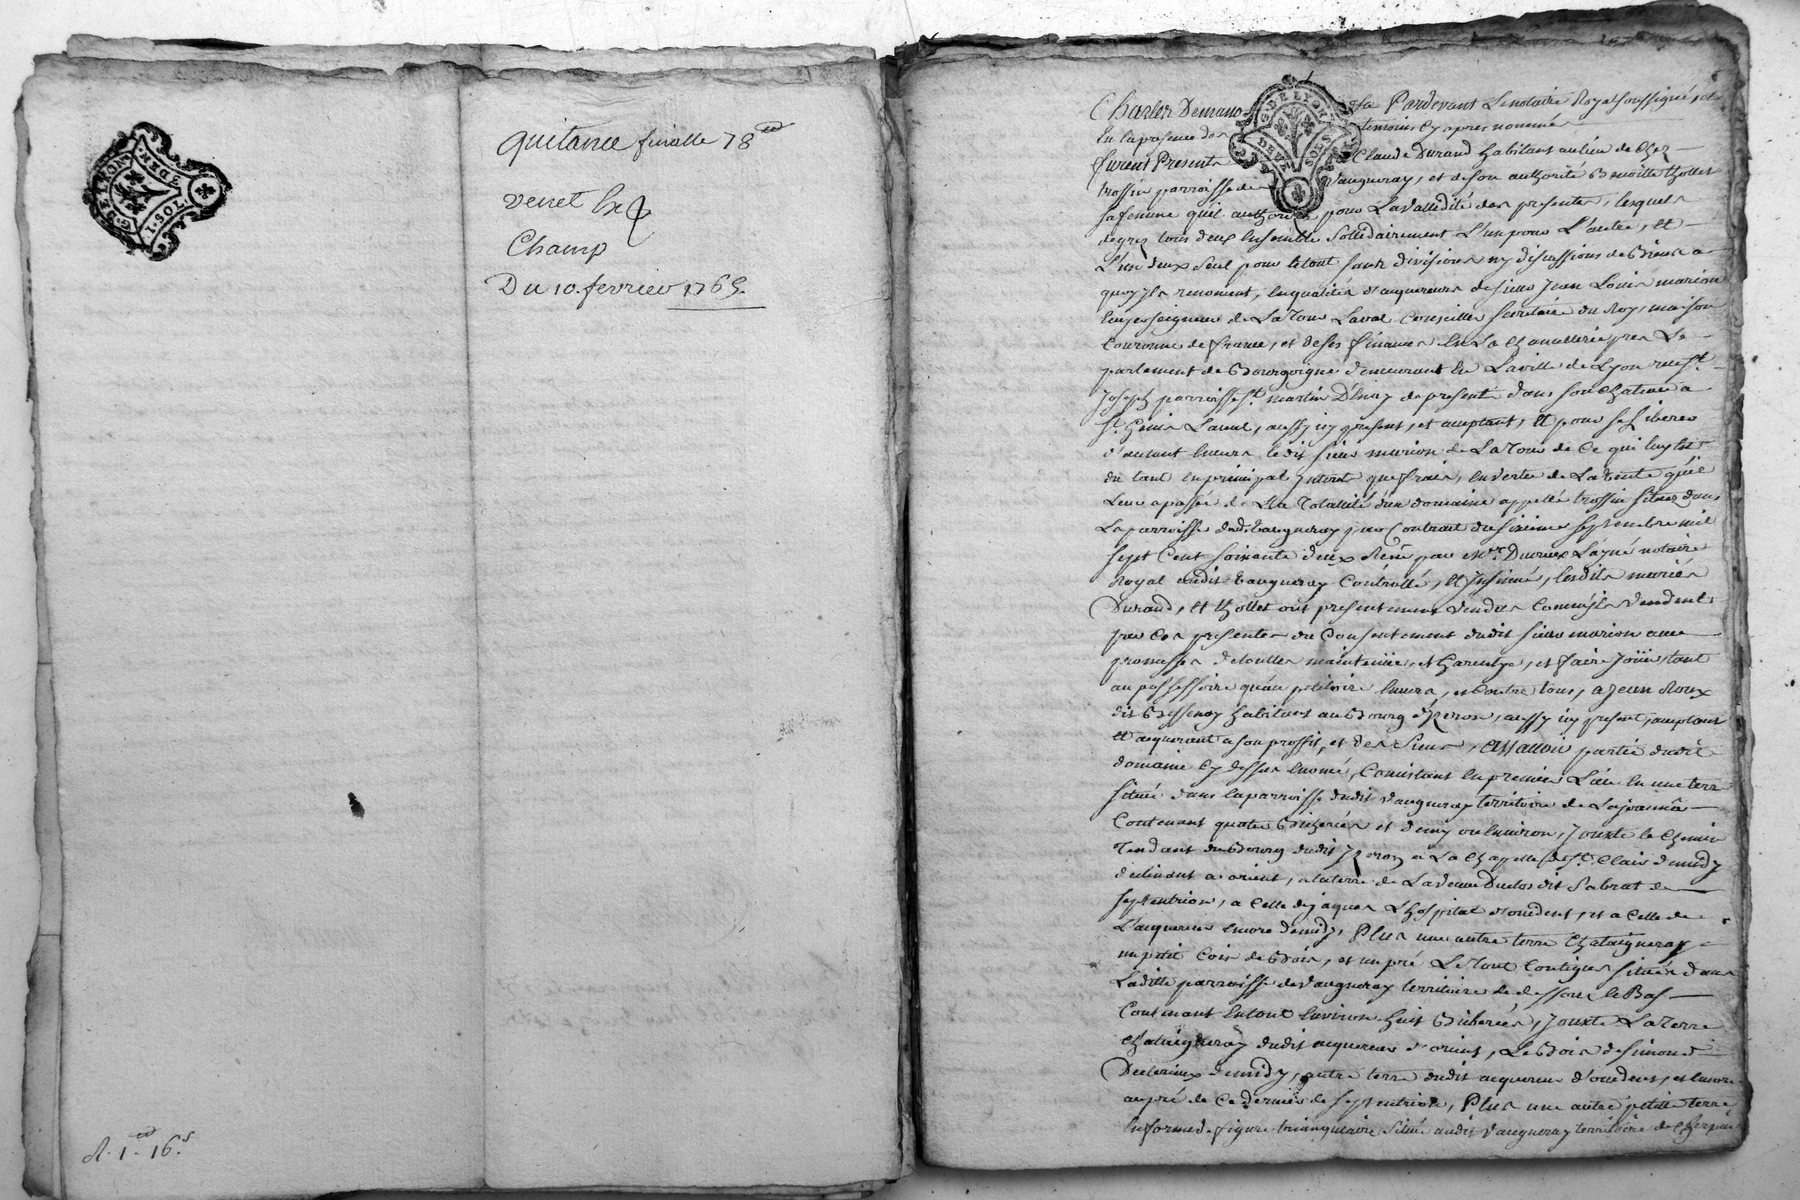 G. DE LYON
quitance finalle 78
venet
Champ
Du 10. fevrier 1765.
1. 16.s
G. DE LYON
DEUX SOLS
Pardevant Le notaire Royal soussigné, et
En la presence des temoins Cy apres nommés
furent Presents Claude Durand habitant au lieu de Chez
trossin parroisse de vaugneray, et de son authorité Benoitte thollet
sa femme quil authorise pour La vallidité des presentes, lesquels
de grez tous deux Ensemble Sollidairement L'un pour L'autre, et
L'un d'eux seul pour le tout sans divisions ny discussions de Biens a
quoy Ils renoncent, En qualités d'acquereurs de sieur Jean Louis marion
Ecuyer seigneur de La Tour Laval Conseiller secretaire du Roy, maison
Couronne de france, et de ses finances En La Chancellerie pres Le
parlement de Bourgogne demeurant En La ville de Lyon rue St.
Joseph parroisse St. martin D'Enay de present dans son Chateau a
St. Genis Laval, aussy icy present, et acceptant, Et pour se Liberer
d'autant Envers ledit sieur marion de La Tour de Ce qui luy est
du tant En principal Interets que frais, En vertu de La vente qu'il
Leur a passée de La Totallité d'un domaine appellé trossin situez dans
La parroisse dud. vaugneray par Contrat du sixieme septembre mil
sept Cent soixante deux Receu par Me. L'ayné notaire
Royal audit vaugneray Contrôllé, et Insinué, lesdits mariés
Durand, et thollet ont presentement vendus Comme Ils vendent
par Ces presentes du Consentement dudit sieur marion avec
promesses de touttes maintenüe, et Garentye, et faire Joüir, tant
au possessoire qu'au petitoire Envers, et Contre tous, a Jean Roux
dit Bessenay habitant au Bourg d'Izeron, aussy icy present, acceptant
Et acquerant a son proffit, et des siens, assavoir partie dudit
domaine Cy dessus Enomé, Consistant En premier Lieu En une terre
située dans la parroisse dudit vaugneray territoire de
Contenant quatre Bicherées et demy ou Environ, Jouxte le Chemin
Tendant du Bourg dudit Izeron a La Chappelle de St. Clair de midy
declinant a orient, a la terre de La veuve Duclos dit Sabrat de
septentrion, a Celle de Jaques L'hospital d'occident, et a Celle de
L'acquereur Encore de midy, Plus une autre terre Chataigneray
un petit Coin de Bois, et un pré Le Tout Contigus situés dans
Laditte parroisse de vaugneray territoire de dessous le Bas
Contenant En tout Environ huit Bicherées, Jouxte La Terre
Chataigneray dudit acquereur d'orient, Le Bois de Simond
de midy, autre terre dudit acquereur d'occident, et Encore
au pré de Ce dernier de septentrion, Plus une autre petite terre
En forme de figure triangulaire située audit vaugneray territoire de